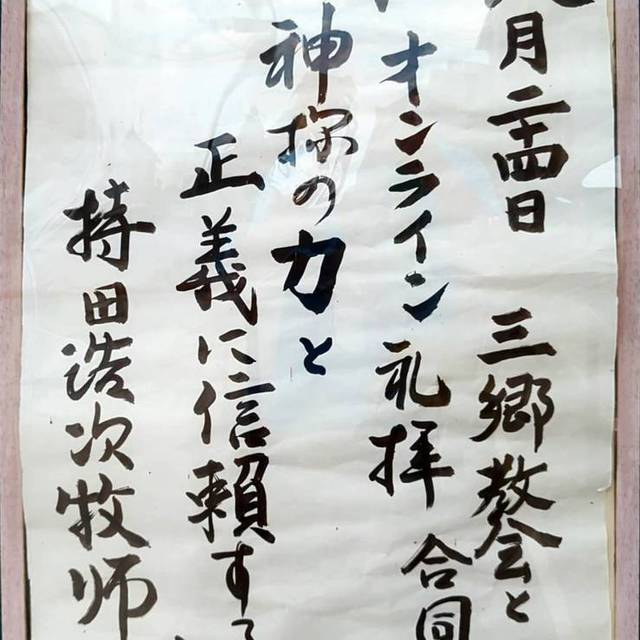 月二十四日 三郷教会と
オンライン礼拝 合同
神様の力と
正義に信頼する
持田浩次牧師